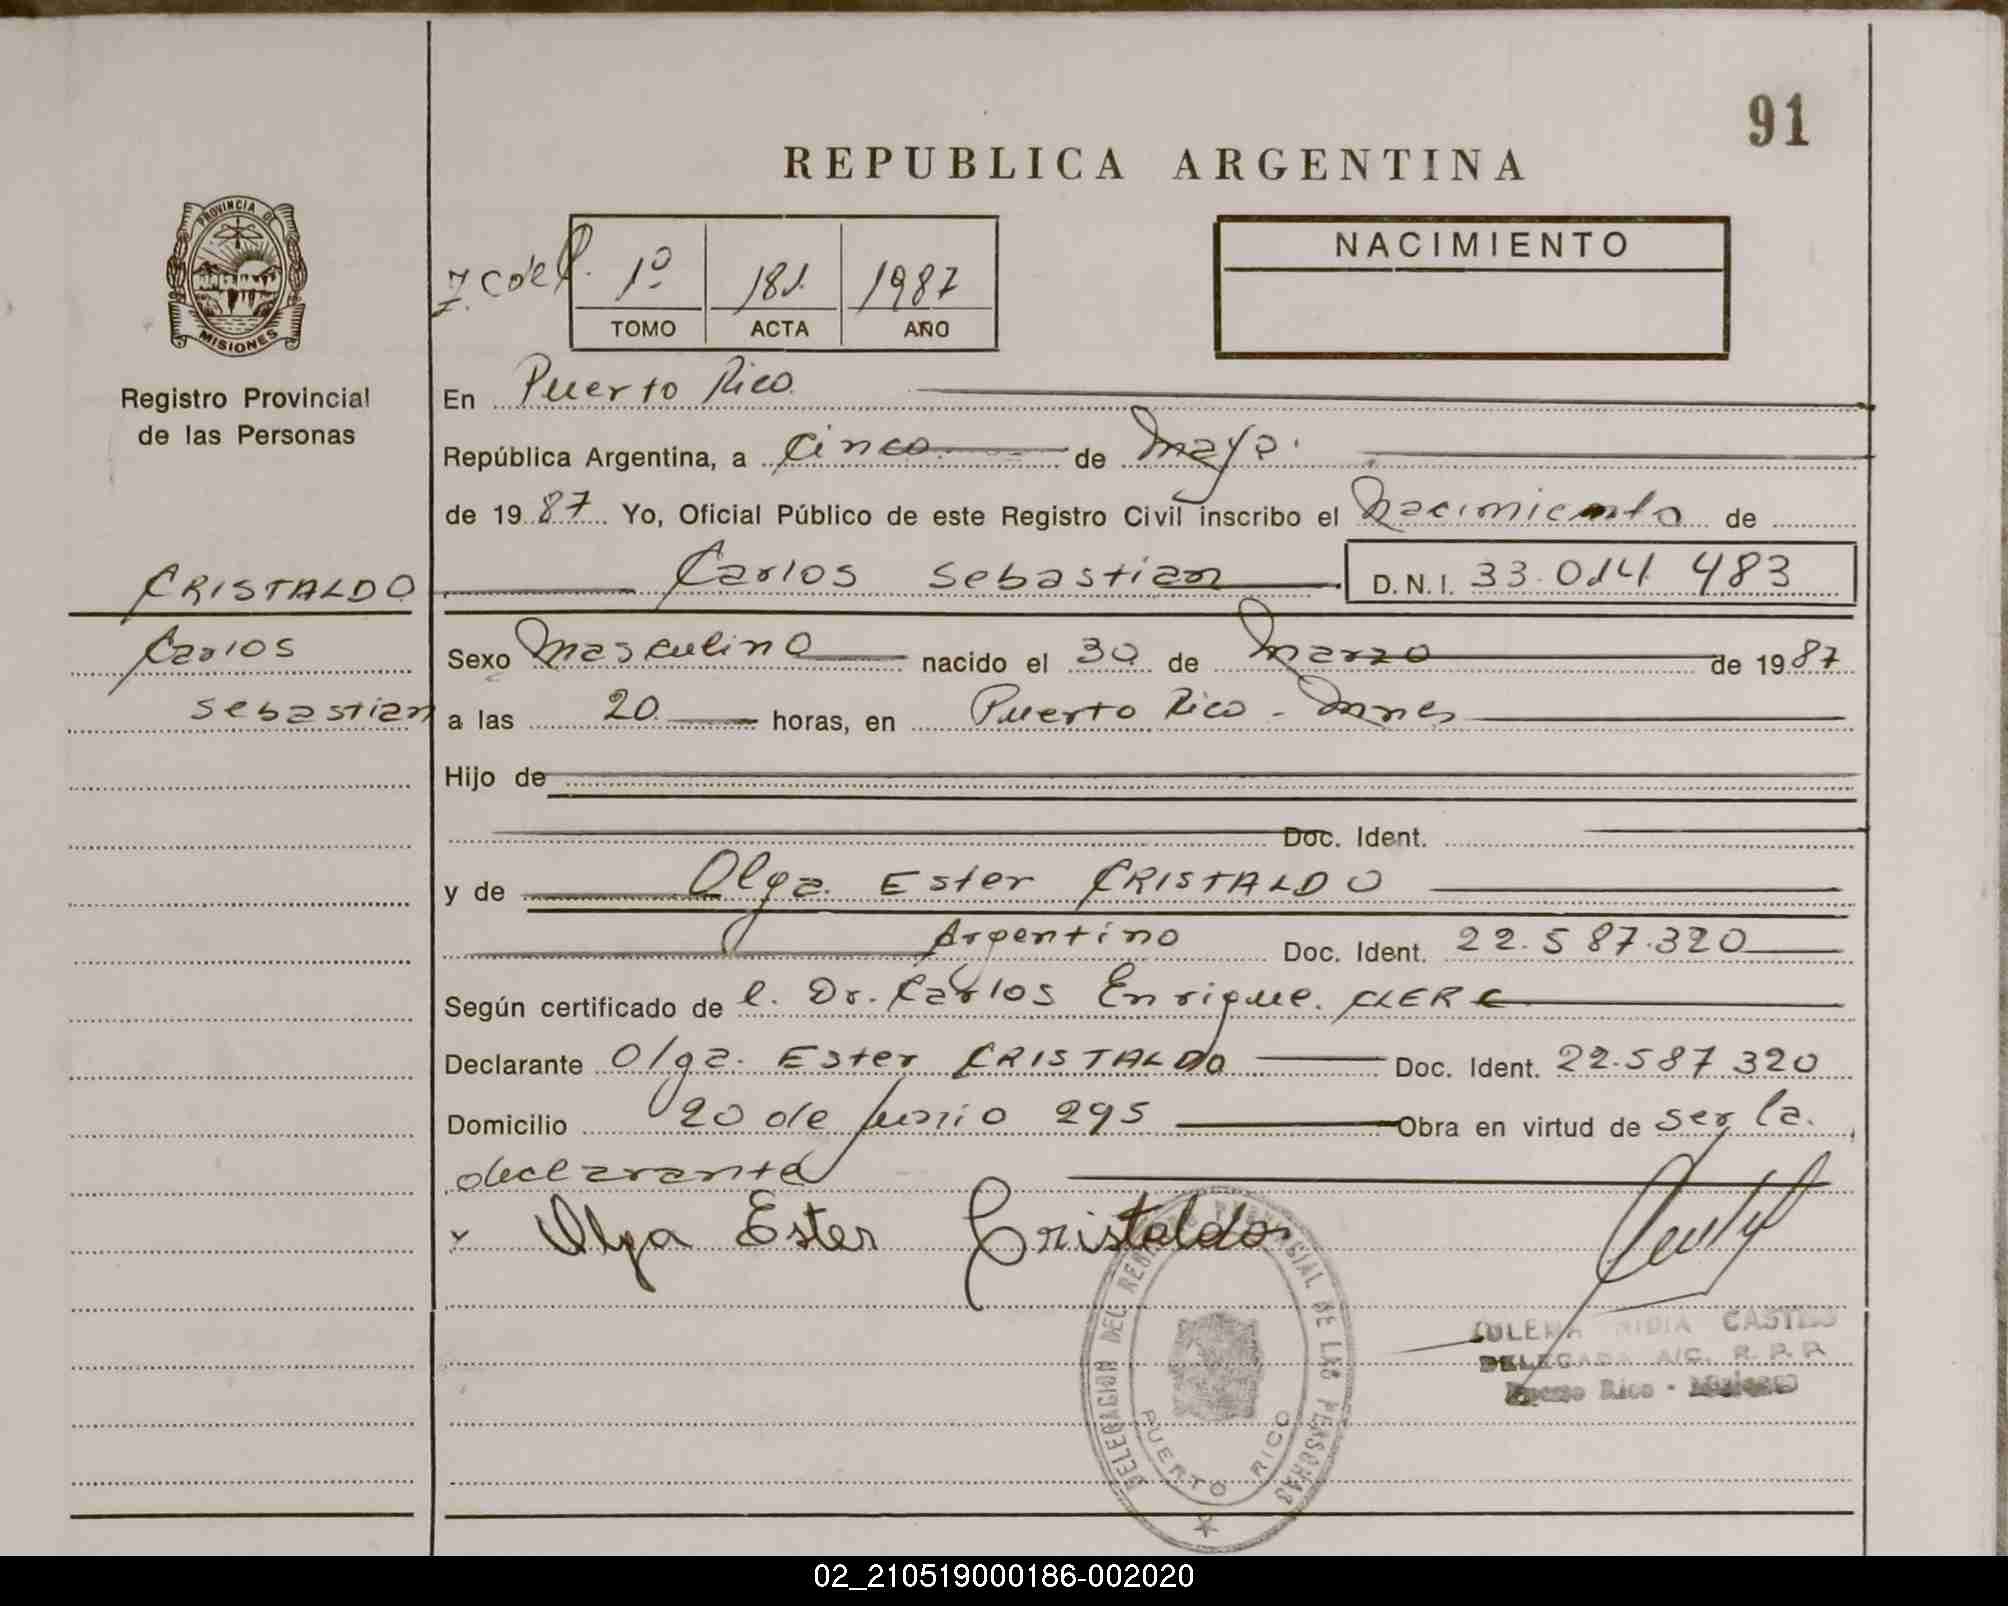 91
REPUBLICA ARGENTINA
PROVINCIA DE
MISIONES
Registro Provincial
de las Personas
1º 181 1987
TOMO ACTA AÑO
NACIMIENTO
En Puerto Rico
República Argentina, a Cinco de Mayo
de 1987 Yo, Oficial Público de este Registro Civil inscribo el Nacimiento de
CRISTALDO
Carlos Sebastian D.N.I. 33.014 483
Carlos
Sexo Masculino nacido el 30 de Marzo de 1987
Sebastian
a las 20 horas, en Puerto Rico - Mnes
Hijo de
Doc. Ident.
y de Olga Ester CRISTALDO
Argentino Doc. Ident. 22.587.320
Según certificado de l. Dr. Carlos Enrique CLERC
Declarante Olga Ester CRISTALDO Doc. Ident. 22.587 320
Domicilio 20 de Junio 295 Obra en virtud de ser la
declarante
Olga Ester Cristaldo
DELEGACION DEL REGISTRO PROVINCIAL DE LAS PERSONAS
PUERTO RICO
CASTELO
DELEGADA A/C. R. P. P.
Puerto Rico - Misiones
02_210519000186-002020